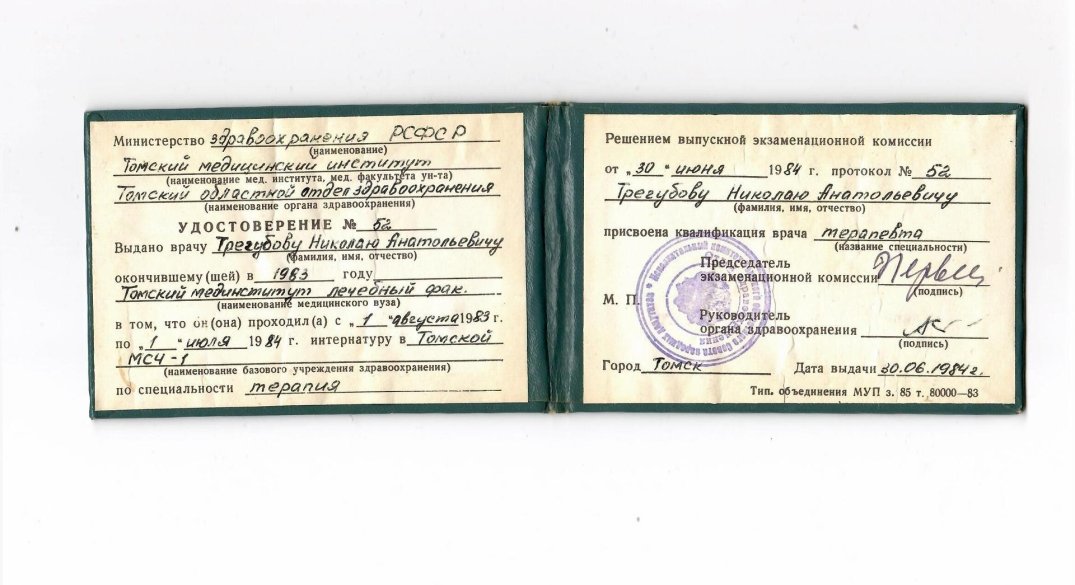 Министерство здравоохранения РСФСР
(наименование)
Томский медицинский институт
(наименование мед. института, мед. факультета ун-та)
Томский областной отдел здравоохранения
(наименование органа здравоохранения)
УДОСТОВЕРЕНИЕ № 52
Выдано врачу Трегубову Николаю Анатольевичу
(фамилия, имя, отчество)
окончившему (шей) в 1983 году
Томский мединститут лечебный фак.
(наименование медицинского вуза)
в том, что он (она) проходил (а) с „1" августа 1983 г.
по „1" июля 1984 г. интернатуру в Томской
МСЧ-1
(наименование базового учреждения здравоохранения)
по специальности терапия
Решением выпускной экзаменационной комиссии
от „30" июня 1984 г. протокол № 52
Трегубову Николаю Анатольевичу
(фамилия, имя, отчество)
присвоена квалификация врача терапевта
(название специальности)
Председатель
экзаменационной комиссии
(подпись)
М. П.
Руководитель
органа здравоохранения
(подпись)
Город Томск Дата выдачи 30.06.1984г.
Тип. объединения МУП з. 85 т. 80000—83